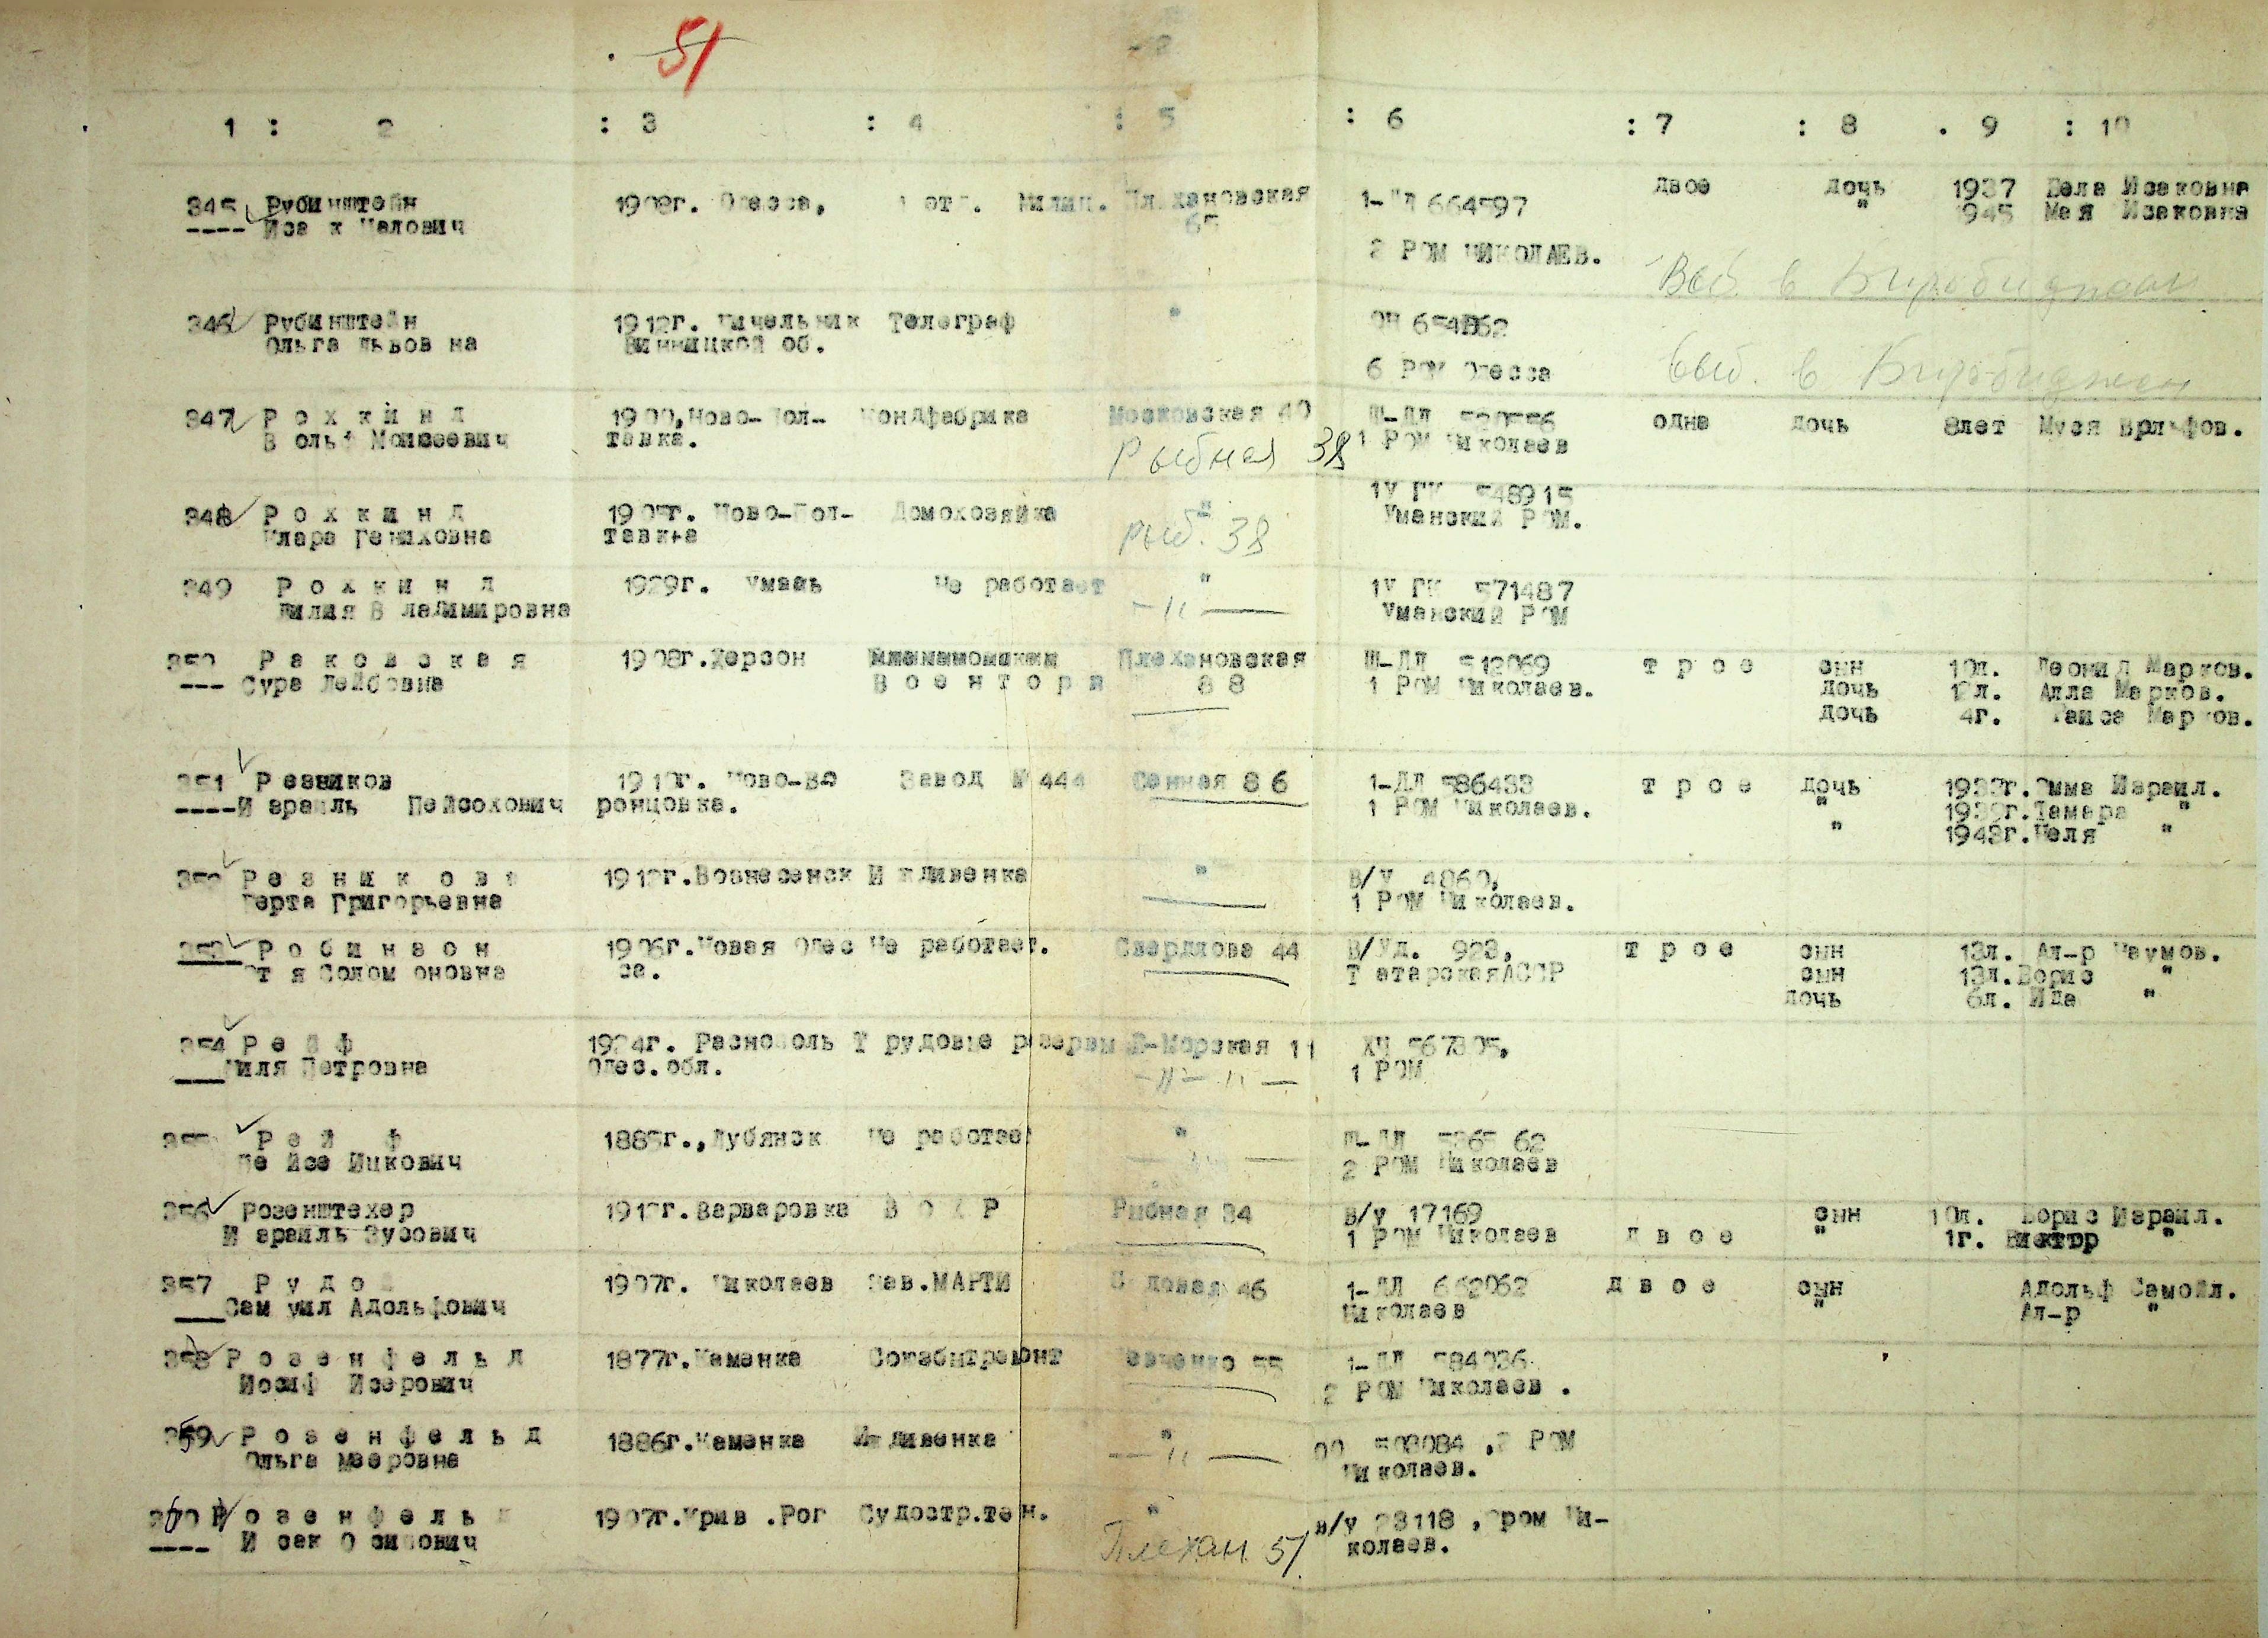 51
1 : 2 : 3 : 4 : 5 : 6 : 7 : 8 . 9 : 10
345 Рубинштейн 1908г. Одесса, 1 отд. Милиц. Плехановская 1-ДЛ 664597 двое дочь 1937 Бела Исаковна
---- Исаак 65 " 1945 Мая Исаковна
2 РОМ НИКОЛАЕВ.
Выб. в Биробиджан
346 Рубинштейн 1912г. Чичельник Телеграф " 654862
Ольга Львовна Винницкой об.
6 РОМ Одесса выб. в Биробиджан
347 Рохкинд 1900, Ново-Пол- Кондфабрика Московская 40 Ш-ДЛ одна дочь 8лет Муся Врльфов.
Вольф Моисеевич тавка. Рыбная 38 1 РОМ Николаев
348 Рохкинд Ново-Пол- Домохозяйка " 1У ГК 548915
Клара Гениховна тавка рыб. 38 Уманский РОМ.
349 Рохкинд 1929г. Умань Не работает " 1У ГК 571487
Лилия Владимировна -"- Уманский РОМ
350 Раковская 1908г.Херсон Плехановская Ш-ДЛ 512069 трое сын 10л. Леонид Марков.
--- Сура Лейбовна Военторг 88 1 РОМ Николаев. дочь 12л. Алла Марков.
дочь 4г. Раиса Марков.
351 Резников Ново-Во Завод № 444 Сенная 86 1-ДЛ 586433 трое дочь Эмма Израил.
----Израиль Пейсохович ронцовка. 1 РОМ Николаев. " Тамара "
" 1943г.Неля "
352 Резникова Вознесенск Иждивенка " В/У 4860,
Берта Григорьевна 1 РОМ Николаев.
353 Робинзон 1906г.Новая Одес Не работает. Свердлова 44 В/Уд. 923, трое сын 13л. Ал-р Наумов.
Соломоновна са. ТатарскаяАССР сын 13л.Борис "
дочь 6л. Ида "
354 Рейф 1924г. Раснополь Трудовые резервы Б-Морская 11 567305,
Петровна Одес.обл. -"- "- 1 РОМ
355 Рейф Дубянск Не работает " Ш-ДЛ
Ицкович 2 РОМ Николаев
356 Розенштехер Варваровка ВОХР Рыбная 34 В/у 17169 сын 10л. Борис Израил.
Израиль Зусович 1 РОМ Николаев двое " 1г. Виктор "
357 Рудой 1907г. Николаев Зав.МАРТИ Садовая 46 1-ДЛ 662062 двое сын Адольф Самойл.
Самуил Адольфович Николаев " Ал-р "
358 Розенфельд 1877г.Каменка Союзбытремонт Шевченко 55 1-ДЛ 584036.
Иосиф Исерович 2 РОМ Николаев .
359 Розенфельд 1886г.Каменка Иждивенка " 503084 ,2 РОМ
Ольга Мееровна -"- Николаев.
360 Розенфельд 1907г.Крив .Рог Судостр.тех. " в/у 28118 , ром Ни-
---- Исак Осипович Плехан. 51 колаев.